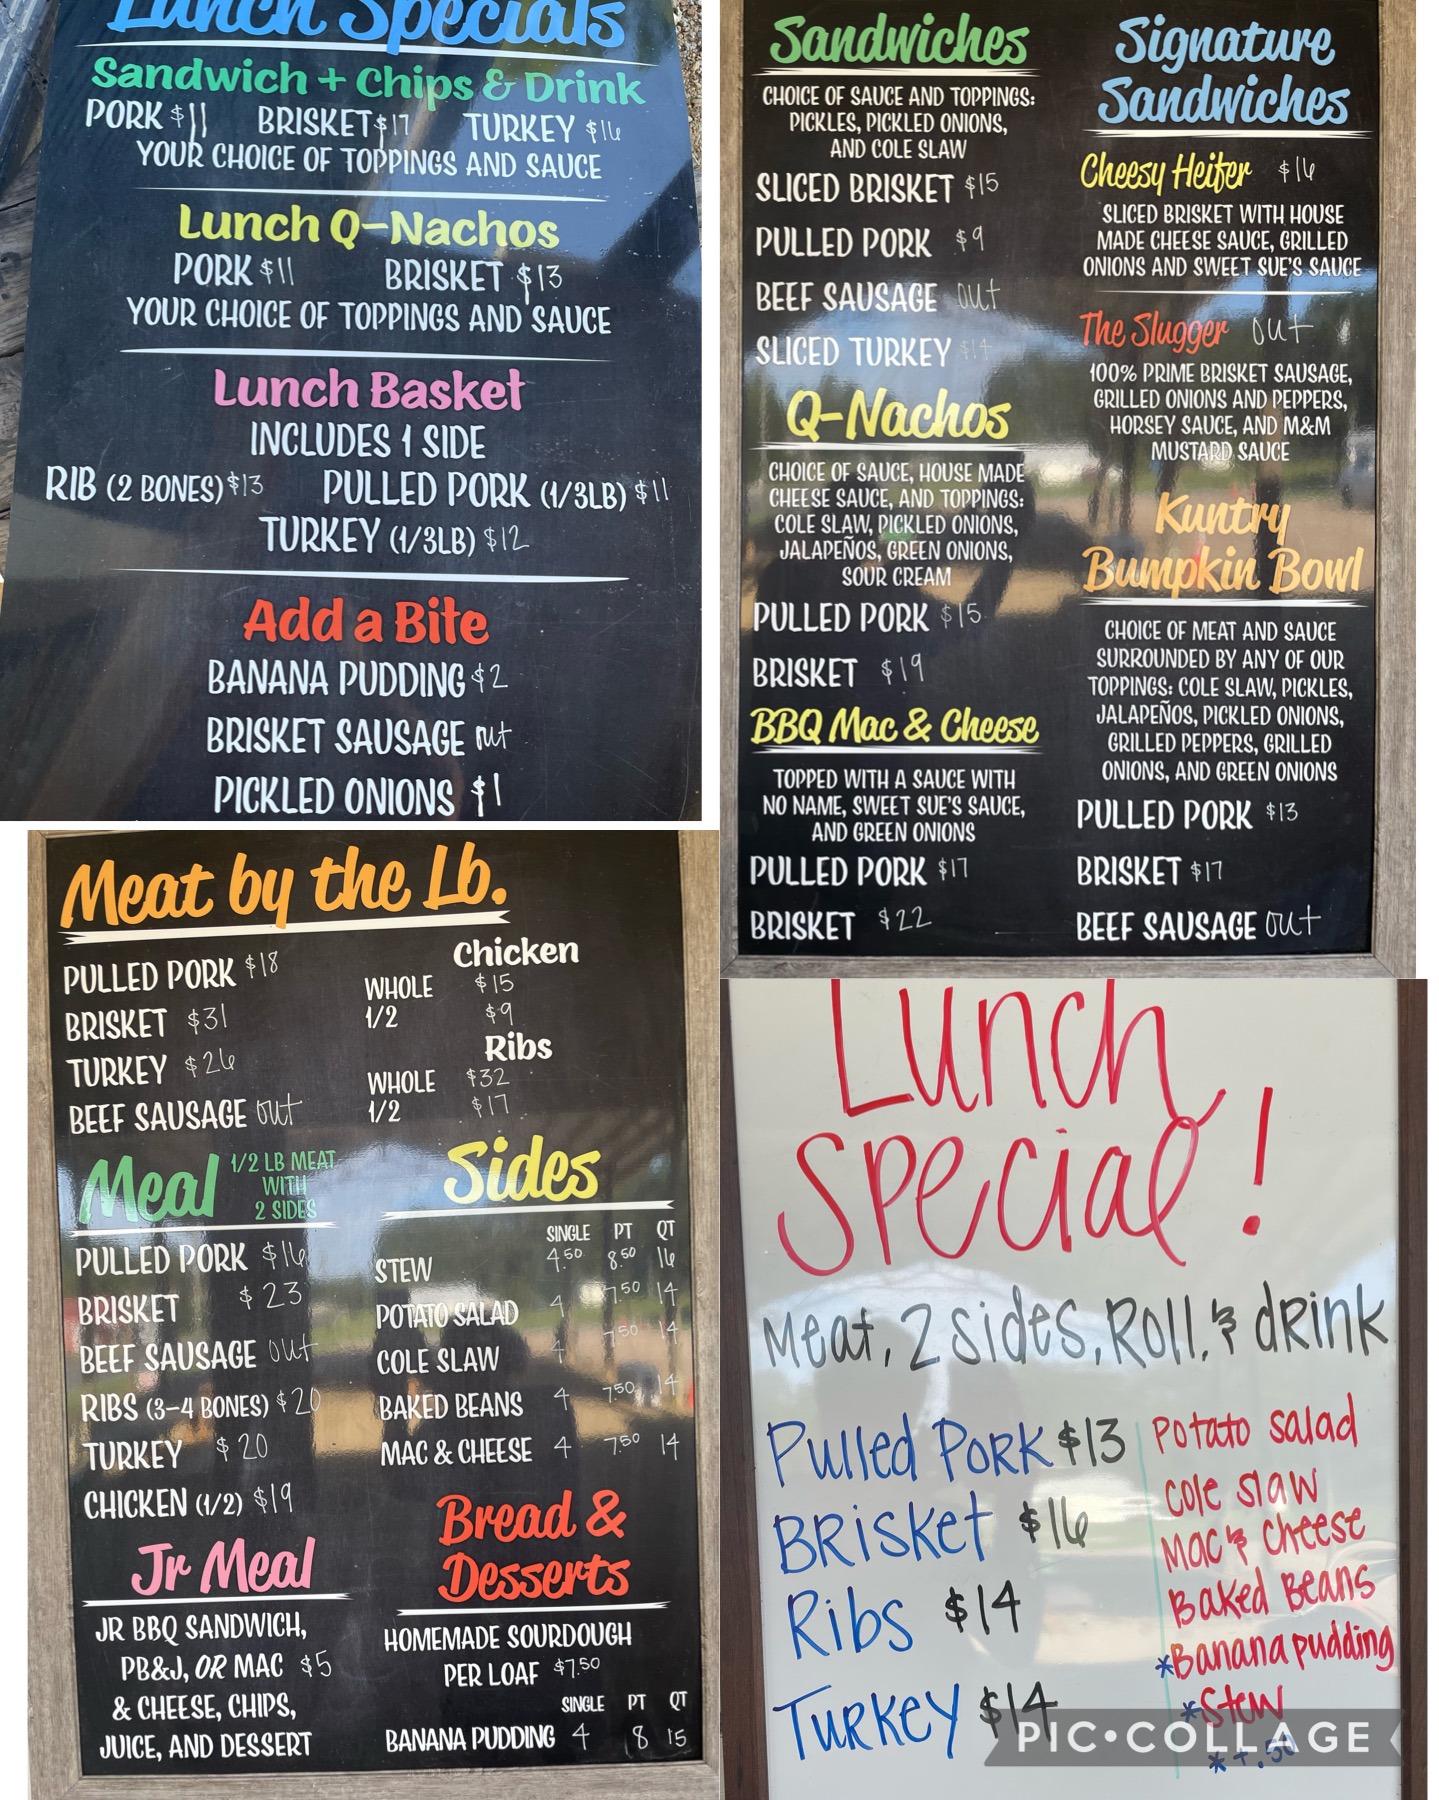 Lunch Specials
Sandwich + Chips & Drink
PORK $11 BRISKET $17 TURKEY $16
YOUR CHOICE OF TOPPINGS AND SAUCE
Lunch Q-Nachos
PORK $11 BRISKET $13
YOUR CHOICE OF TOPPINGS AND SAUCE
Lunch Basket
INCLUDES 1 SIDE
RIB (2 BONES) $13 PULLED PORK (1/3LB) $11
TURKEY (1/3LB) $12
Add a Bite
BANANA PUDDING $2
BRISKET SAUSAGE out
PICKLED ONIONS $1
Sandwiches
CHOICE OF SAUCE AND TOPPINGS:
PICKLES, PICKLED ONIONS,
AND COLE SLAW
SLICED BRISKET $15
PULLED PORK $9
BEEF SAUSAGE out
SLICED TURKEY $14
Q-Nachos
CHOICE OF SAUCE, HOUSE MADE
CHEESE SAUCE, AND TOPPINGS:
COLE SLAW, PICKLED ONIONS,
JALAPEÑOS, GREEN ONIONS,
SOUR CREAM
PULLED PORK $15
BRISKET $19
BBQ Mac & Cheese
TOPPED WITH A SAUCE WITH
NO NAME, SWEET SUE'S SAUCE,
AND GREEN ONIONS
PULLED PORK $17
BRISKET $22
Signature
Sandwiches
Cheesy Heifer $16
SLICED BRISKET WITH HOUSE
MADE CHEESE SAUCE, GRILLED
ONIONS AND SWEET SUE'S SAUCE
The Slugger out
100% PRIME BRISKET SAUSAGE,
GRILLED ONIONS AND PEPPERS,
HORSEY SAUCE, AND M&M
MUSTARD SAUCE
Kuntry
Bumpkin Bowl
CHOICE OF MEAT AND SAUCE
SURROUNDED BY ANY OF OUR
TOPPINGS: COLE SLAW, PICKLES,
JALAPEÑOS, PICKLED ONIONS,
GRILLED PEPPERS, GRILLED
ONIONS, AND GREEN ONIONS
PULLED PORK $13
BRISKET $17
BEEF SAUSAGE out
Meat by the Lb.
PULLED PORK $18
BRISKET $31
TURKEY $26
BEEF SAUSAGE out
Chicken
WHOLE $15
1/2 $9
Ribs
WHOLE $32
1/2 $17
Meal 1/2 LB MEAT
WITH
2 SIDES
PULLED PORK $16
BRISKET $23
BEEF SAUSAGE out
RIBS (3-4 BONES) $20
TURKEY $20
CHICKEN (1/2) $19
Jr Meal
JR BBQ SANDWICH,
PB&J, OR MAC $5
& CHEESE, CHIPS,
JUICE, AND DESSERT
Sides
SINGLE PT QT
STEW 4.50 8.50 16
POTATO SALAD 4 7.50 14
COLE SLAW 4 7.50 14
BAKED BEANS 4 7.50 14
MAC & CHEESE 4 7.50 14
Bread &
Desserts
HOMEMADE SOURDOUGH
PER LOAF $7.50
SINGLE PT QT
BANANA PUDDING 4 8 15
Lunch
Special!
Meat, 2 sides, Roll, & drink
Pulled Pork $13
Brisket $16
Ribs $14
Turkey $14
Potato salad
Cole slaw
Mac & Cheese
Baked Beans
*Banana pudding
*Stew
* +.50
PIC•COLLAGE